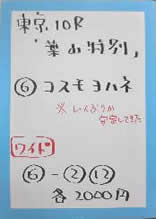 東京10R
「葉山特別」
⑥コスモヨハネ
※いんぶりが
安定してきた
ワイド
⑥-②⑫
各2000円